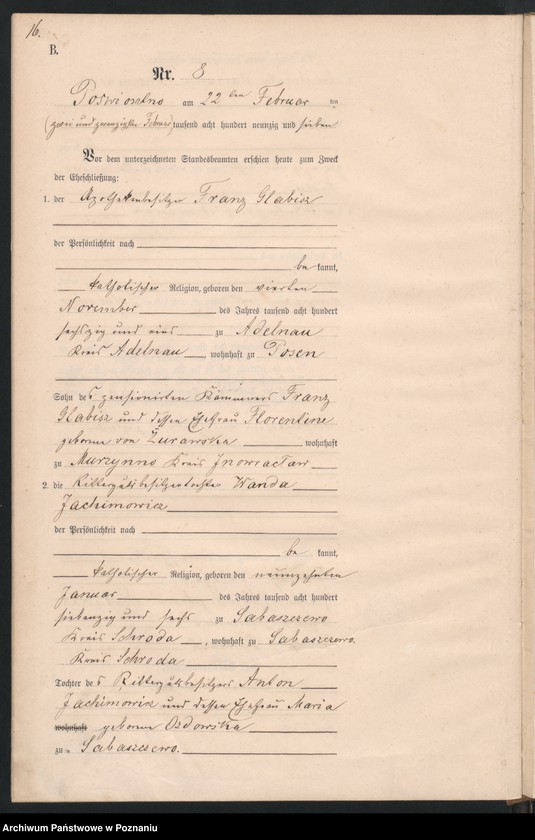 16.
B.
Nr. 8
am 22ten Februar
(zwei und zwanzigsten Februar) tausend acht hundert neunzig und sieben
Vor dem unterzeichneten Standesbeamten erschien heute zum Zweck
der Eheschließung:
1. der Apothekenbesitzer Franz Glabisz
der Persönlichkeit nach
be kannt,
katholischer Religion, geboren den vierten
November des Jahres tausend acht hundert
sechszig und eins zu Adelnau
Kreis Adelnau, wohnhaft zu Posen
Sohn des pensionirten Kämmerers Franz
Glabisz und dessen Ehefrau Florentine
geborene von Żurawska wohnhaft
zu Murzynno Kreis Inowraclaw
2. die Rittergutsbesitzertochter Wanda
Jachimowicz
der Persönlichkeit nach
be kannt,
katholischer Religion, geboren den neunzehnten
Januar des Jahres tausend acht hundert
siebenzig und sechs zu Sabaszczewo
Kreis Schroda, wohnhaft zu Sabaszczewo
Kreis Schroda
Tochter des Rittergutsbesitzers Anton
Jachimowicz und dessen Ehefrau Maria
wohnhaft geborene Osdowska
zu Sabaszczewo.
Archiwum Państwowe w Poznaniu